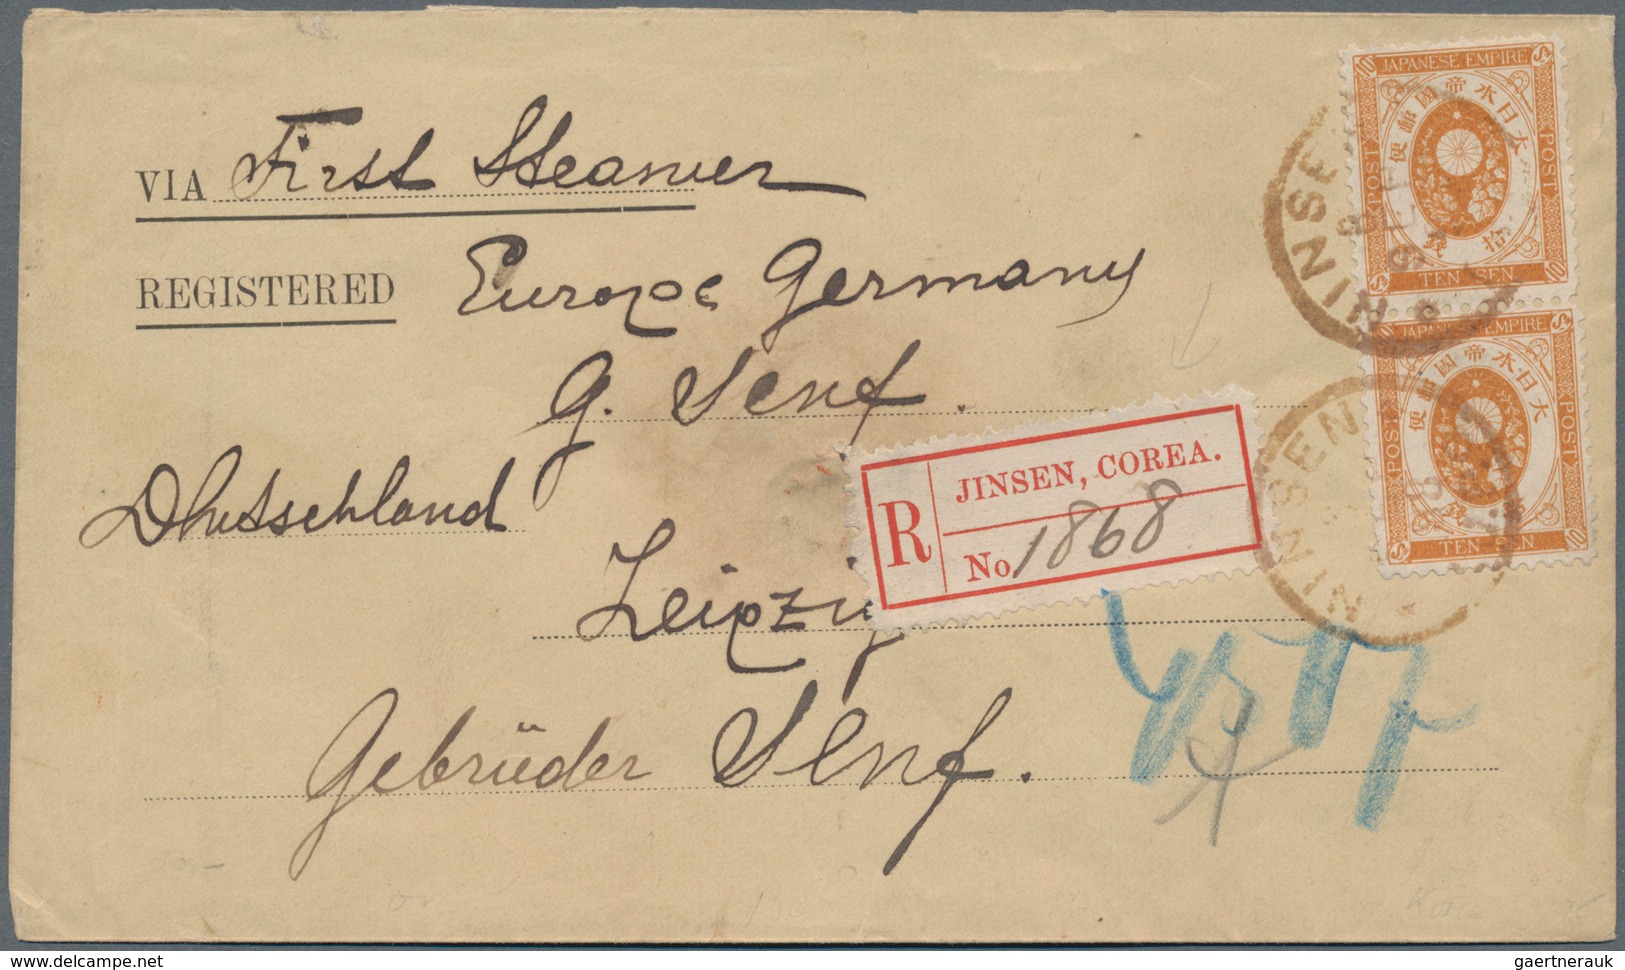 VIA First Steamer
REGISTERED Europe Germany
G. Senf.
Dheutschland
Leipzig
Gebrüder Senf.
R JINSEN, COREA.
No 1868
10 JAPANESE EMPIRE Sn
大日本帝國郵便
POST POST
拾錢
Sn TEN SEN 10
10 JAPANESE EMPIRE Sn
大日本帝國郵便
POST POST
拾錢
Sn TEN SEN 10
JINSEN
JINSEN
www.delcampe.net
gaertnerauk